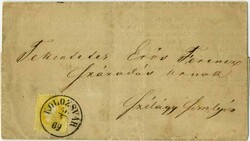 Tekintetes Erős Ferencz
Százados úrnak
Szilágy Somlyó
KOLOZSVÁR
69